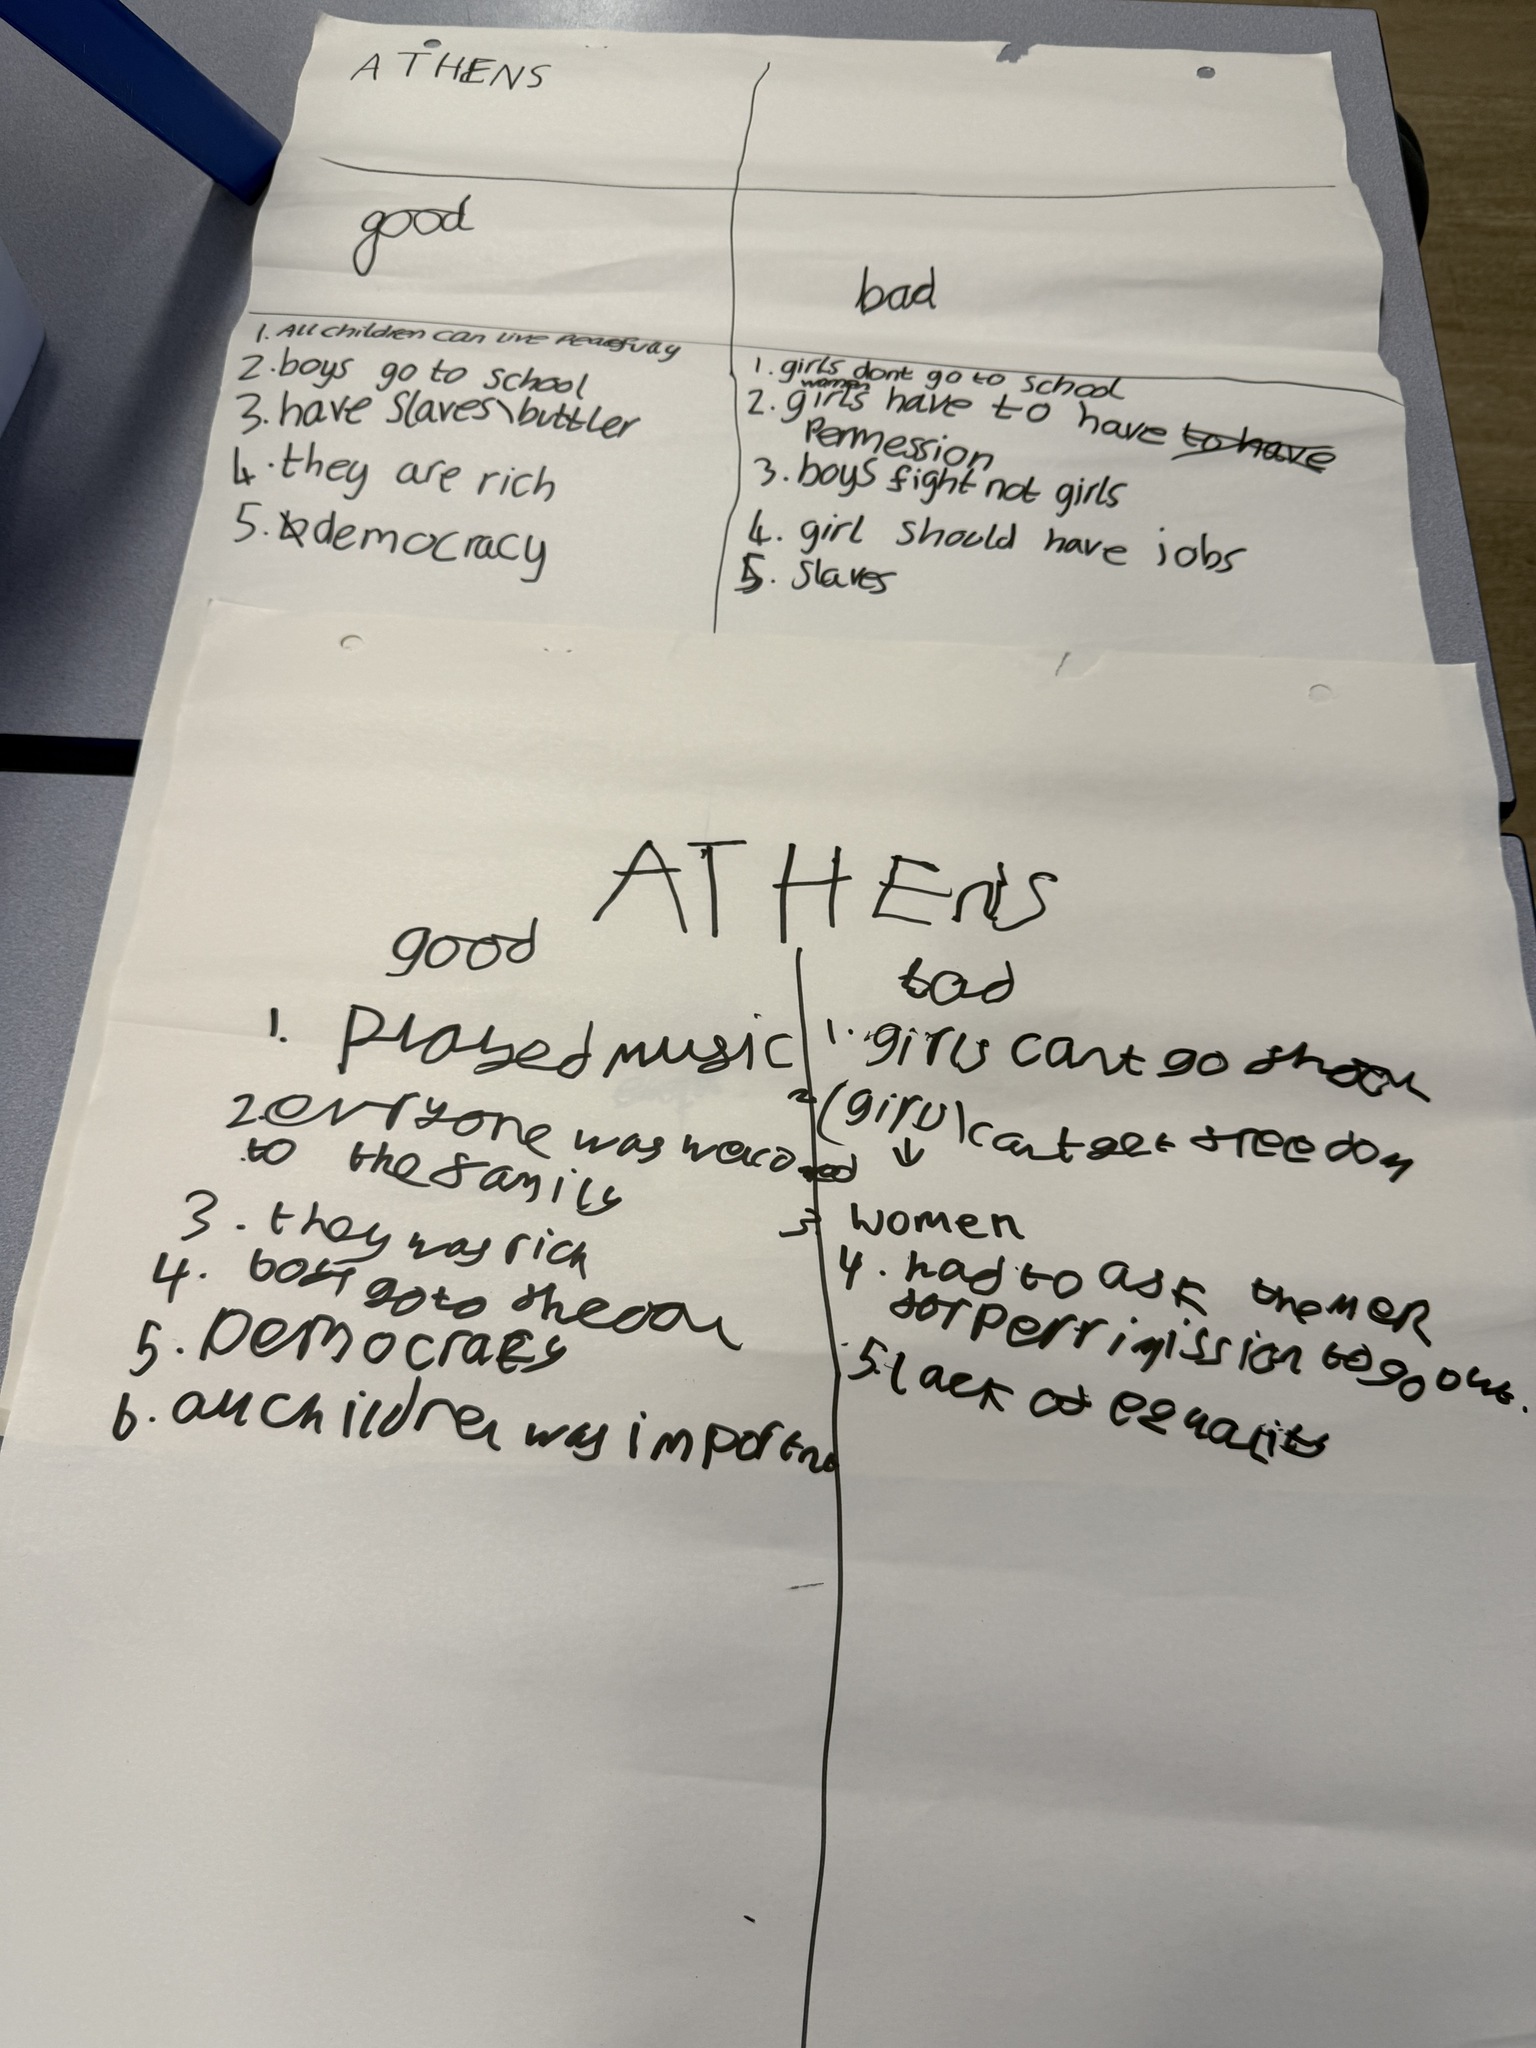 ATHENS
good
bad
1. All children can live Peacefully
2. boys go to school
3. have slaves\buttler
4. they are rich
5. democracy
1. girls dont go to school
women
2. girls have to have to have
Permession
3. boys fight not girls
4. girl should have jobs
5. Slaves
ATHEnS
good
bad
1. Played music
2. everyone was
to the family
3. they was rich
4. go to
5. Democracy
6. all children was
1. girls cant go
2. (girls) cant get freedom
3 women
4. had to ask the men
for to go out.
5. lack of